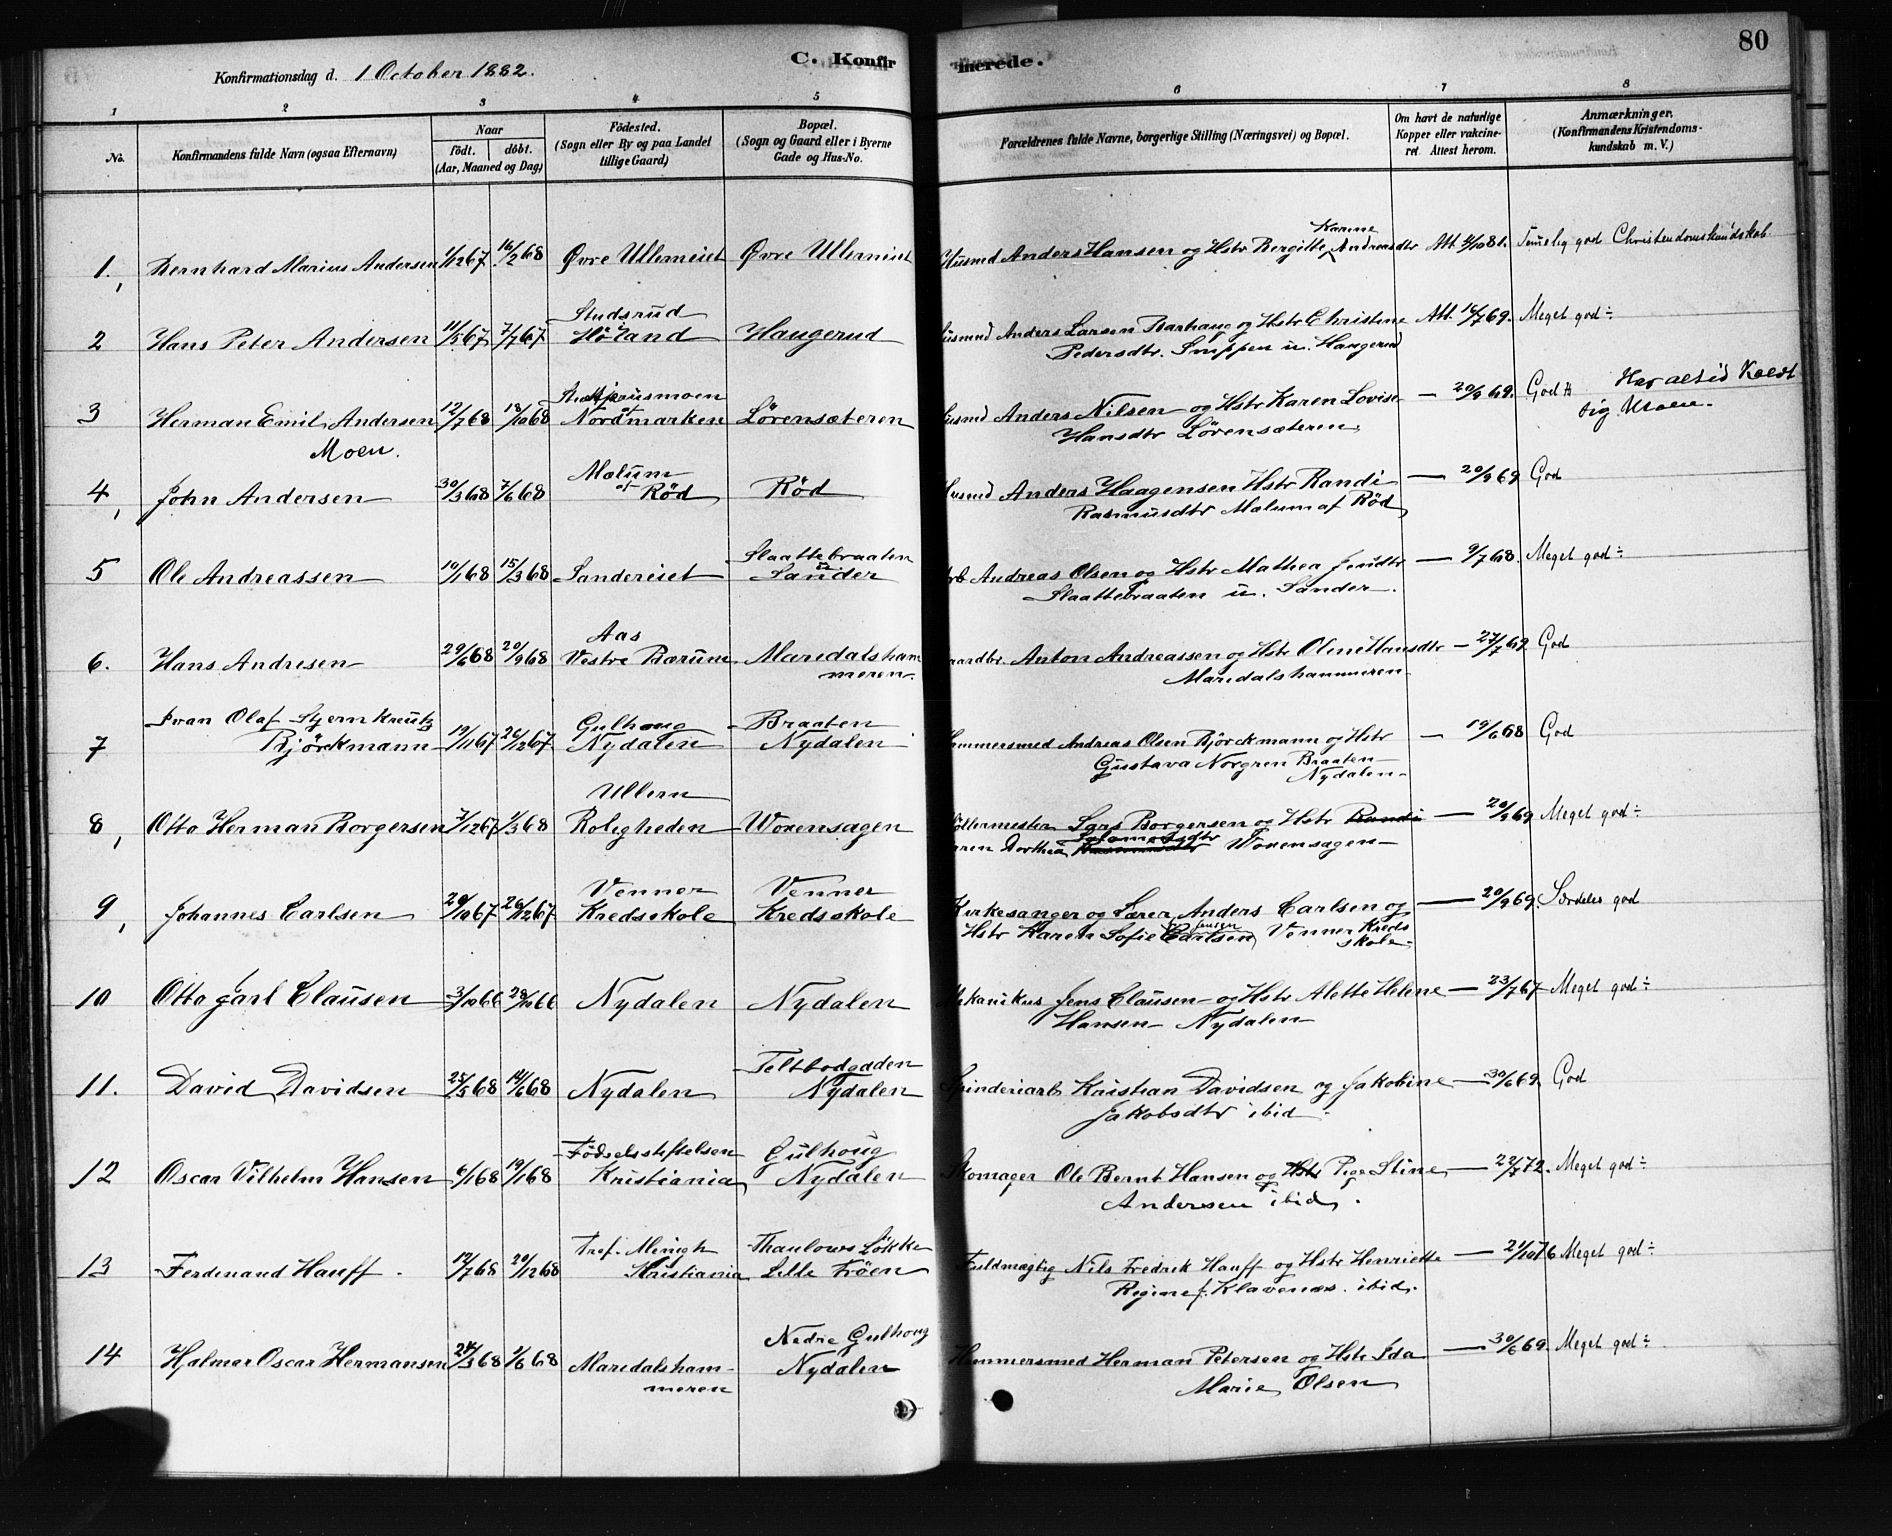 80
C. Konfirmerede.
Konfirmationsdag d. 1 October 1882.
1 2 3 4 5 6 7 8
No. Konfirmandens fulde Navn (ogsaa Efternavn) Naar födt. döbt. (Aar, Maaned og Dag) Födested. (Sogn eller By og paa Landet tillige Gaard) Bopæl. (Sogn og Gaard eller i Byerne Gade og Hus-No. Forældrenes fulde Navne, borgerlige Stilling (Næringsvei) og Bopæl. Om havt de naturlige Kopper eller vakcineret. Attest herom. Anmærkninger. (Konfirmandens Kristendomskundskab m. V.)
1, Bernhard Marius Andersen 1/12 67 16/2 68 Øvre Ullerneiet Øvre Ullerneiet Husmd Anders Hansen og Hstr Bergitte Karine Andreasdtr Att. 81. Temelig god Christendomskundskab
2 Hans Peter Andersen 11/5 67 7/7 67 Studsrud
Höland Haugerud Husmd Anders Larsen Barhaug og Hstr Christine Att. 14/7 69. Meget god ÷
Pedersdtr. u. Haugerud
3 Herman Emil Andersen 12/7 68 18/10 68 Nordmarken Lörensæteren Husmd Anders Nilsen og Hstr Karen Lovise — 20/9 69. God Har altid Kaldt
Moen. Hansdtr Lörensæteren sig Moen.
4, John Andersen 30/3 68 7/6 68 Mælum
af Röd Röd Husmd Anders Haagensen Hstr Randi — 20/9 69 God
Rasmusdtr Mælum af Röd
5 Ole Andreassen 19/1 68 15/3 68 Sandereiet Slaattebraaten
Sander Arb Andreas Olsen og Hstr Mathea — 9/7 68. Meget god ÷
Slaattebraaten u. Sander.
6. Hans Andresen 29/6 68 20/9 68 Aas
Vestre Bærum Maridalshammeren Gaardbr. Anton Andreassen og Hstr Oline Hansdtr — 27/7 69 God
Maridalshammeren
7 Ivan Olaf Stjernkreutz
Björckmann 19/11 67 26/12 67 Gulhoug
Nydalen Braaten
Nydalen Hammersmed Andreas Olsen Björckmann og Hstr — 19/6 68 God
Gustava Norgren Braaten
Nydalen
8, Otto Herman Borgersen 7/12 67 1/3 68 Ullern
Roligheden Woxensagen Möllermester Lars Borgersen og Hstr Randi — 20/9 69 Meget god ÷
Karen Dorthea Salomonsdtr Rasmusdtr Woxensagen
9, Johannes Carlsen 29/10 67 26/12 67 Venner
Kredsskole Venner
Kredsskole Kirkesanger og Lærer Anders Carlsen og — 20/9 69. Særdeles god
Hstr Karen Sofie Carlsen Jensen Venner Kredsskole
10 Otto Jarl Clausen 3/10 66 28/10 66 Nydalen Nydalen Mekanikus Jens Clausen og Hstr Alette Helene — 23/7 67 Meget god ÷
Hansen Nydalen
11. David Davidsen 25/3 68 14/6 68 Nydalen Teltbodgaden
Nydalen Spinderiarb Kristian Davidsen og Jakobine — 30/6 69. God
Jakobsdtr ibid
12 Oscar Vilhelm Hansen 6/1 68 19/1 68 Födselsstiftelsen
Kristiania Gulhoug
Nydalen Skomager Ole Bernt Hansen og Hstr Pige Stine — 22/7 72. Meget god ÷
Andersen ibid.
13 Ferdinand Hauff 12/7 68 20/12 68 Tref. Menigh
Kristiania Thaulows Lökke
Lille Fröen Fuldmægtig Nils Fredrik Hauff og Hstr Henriette — 21/10 76 Meget god ÷
Regine f. Klavenæs ibid.
14 Hjalmar Oscar Hermansen 24/3 68 1/6 68 Maridalshammeren Nedre Gulhoug
Nydalen Hammersmed Herman Petersen og Hstr Ida — 30/6 69. Meget god ÷
Marie Olsen